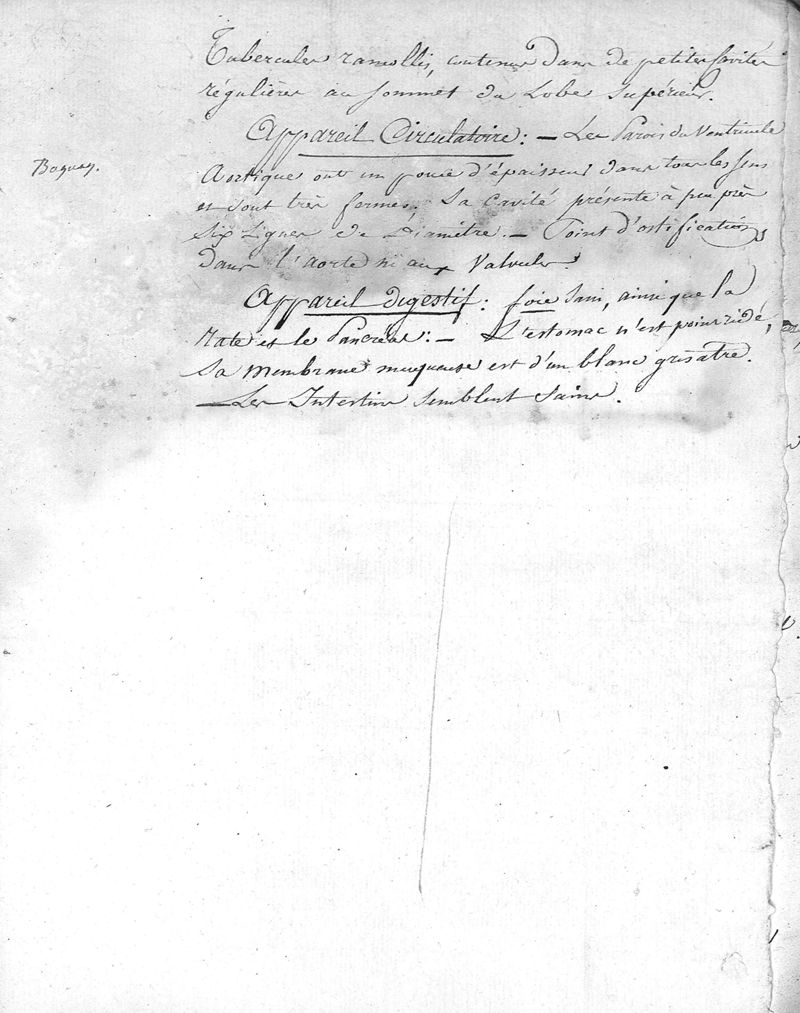 Tubercules ramollis, contenus dans de petites Cavités
régulières au sommet du Lobe Supérieur.
Appareil Circulatoire : — Les Parois du Ventricule
Baguay.
Aortiques ont un pouce d'épaisseur dans tous les sens
et sont très fermes. Sa Cavité présente à peu près
six Lignes de Diamètre. — Point d'ostifications
dans l'aorte ni aux Valvules.
Appareil digestif : foie Sain, ainsi que la
rate et le Pancréas : — L'estomac n'est point ridé,
sa membrane muqueuse est d'un blanc grisatre.
— Les Intestins semblent Sains.